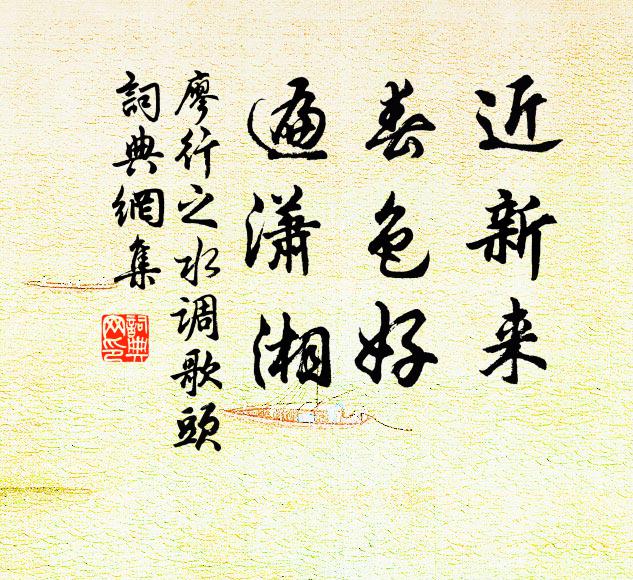 近新来
春色好
遍潇湘
廖行之水调歌頭
詞典網集
詞典
网印